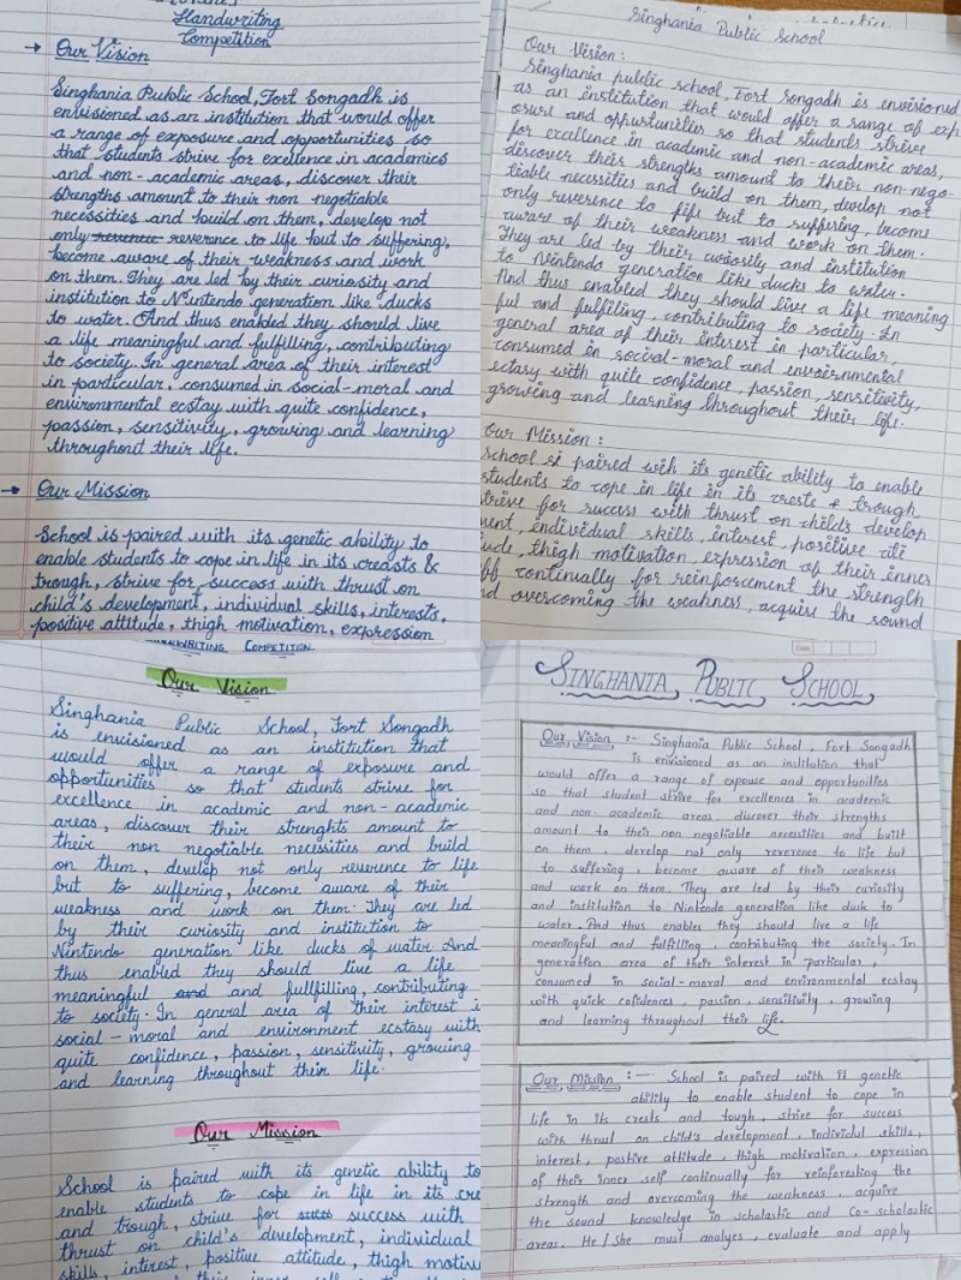 Handwriting
Competition
→ Our Vision
Singhania Public School, Fort Songadh is
envisioned as an institution that would offer
a range of exposure and opportunities, so
that students strive for excellence in academics
and non-academic areas, discover their
strengths amount to their non negotiable
necessities and build on them, develop not
only reverence to life but to suffering,
become aware of their weakness and work
on them. They are led by their curiosity and
institution to Nintendo generation like ducks
to water. And thus enabled they should live
a life meaningful and fulfilling, contributing
to society. In general area of their interest
in particular, consumed in social-moral and
environmental ecstay with quite confidence,
passion, sensitivity, growing and learning
throughout their life.
→ Our Mission
School is paired with its genetic ability to
enable students to cope in life in its creasts &
trough, strive for success with thrust on
child's development, individual skills, interests,
positive attitude, thigh motivation, expression
Singhania Public School
Our Vision:
Singhania public school, Fort Songadh is envisioned
as an institution that would offer a range of exp
osure and oppurtunities so that students strive
for excellence in academic and non-academic areas,
discover their strengths amount to their non-nego-
tiable necessities and build on them, develop not
only reverence to life but to suffering, become
aware of their weakness and work on them.
They are led by their curiosity and institution
to Nintendo generation like ducks to water.
And thus enabled they should live a life meaning
ful and fulfiling, contributing to society. In
general area of their interest in particular,
consumed in social-moral and envoirnmental
ectasy with quite confidence, passion, sensitivity,
growing and learning throughout their life.
Our Mission:
School si paired with its genetic ability to enable
students to cope in life in its creste & trough
strive for success with thrust on child's develop
ment, individual skills, interest, positive
thigh motivation, expression of their inner
continually for reinforcement the strength
nd overcoming the weakness, acquire the sound
HANDWRITING COMPETITION
Our Vision
Singhania Public School, Fort Songadh
is envisioned as an institution that
would offer a range of exposure and
opportunities so that students strive for
excellence in academic and non-academic
areas, discover their strenghts amount to
their non negotiable necessities and build
on them, develop not only reverence to life
but to suffering, become aware of their
weakness and work on them. They are led
by their curiosity and institution to
Nintendo generation like ducks of water And
thus enabled they should live a life
meaningful and and fullfilling, contributing
to society. In general area of their interest i
social - moral and environment ecstasy with
quite confidence, passion, sensitivity, growing
and learning throughout their life.
Our Mission
School is paired with its genetic ability to
enable students to cope in life in its cre
and trough, strive for success with
thrust on child's development, individual
skills, interest, positive attitude, thigh motiv
their inner self
SINGHANIA PUBLIC SCHOOL
Our Vision :- Singhania Public School, Fort Songadh
is envisioned as an institution that
would offer a range of expouse and opportunities
so that student strive for excellences in academic
and non-academic areas, discover their strengths
amount to their non negotiable necessities and built
on them, develop not only reverence to life but
to suffering, become aware of their weakness
and work on them. They are led by their curiosity
and institution to Nintendo generation like duck to
water. And thus enables they should live a life
meaningful and fulfilling, contributing the society. In
generation area of their interest in particular,
consumed in social-moral and environmental ecstay
with quick cofidences, passion, sensitivity, growing
and learning throughout their life.
Our Mission :- School is paired with it genetic
ability to enable student to cope in
life in its crests and tough, strive for success
with thrust on child's development, individul skills,
interest, positive attitude, thigh motivation, expression
of their inner self continually for reinforesting the
strength and overcoming the weakness, acquire
the sound knowledge in scholastic and Co-scholastic
areas. He/She must analyes, evaluate and apply